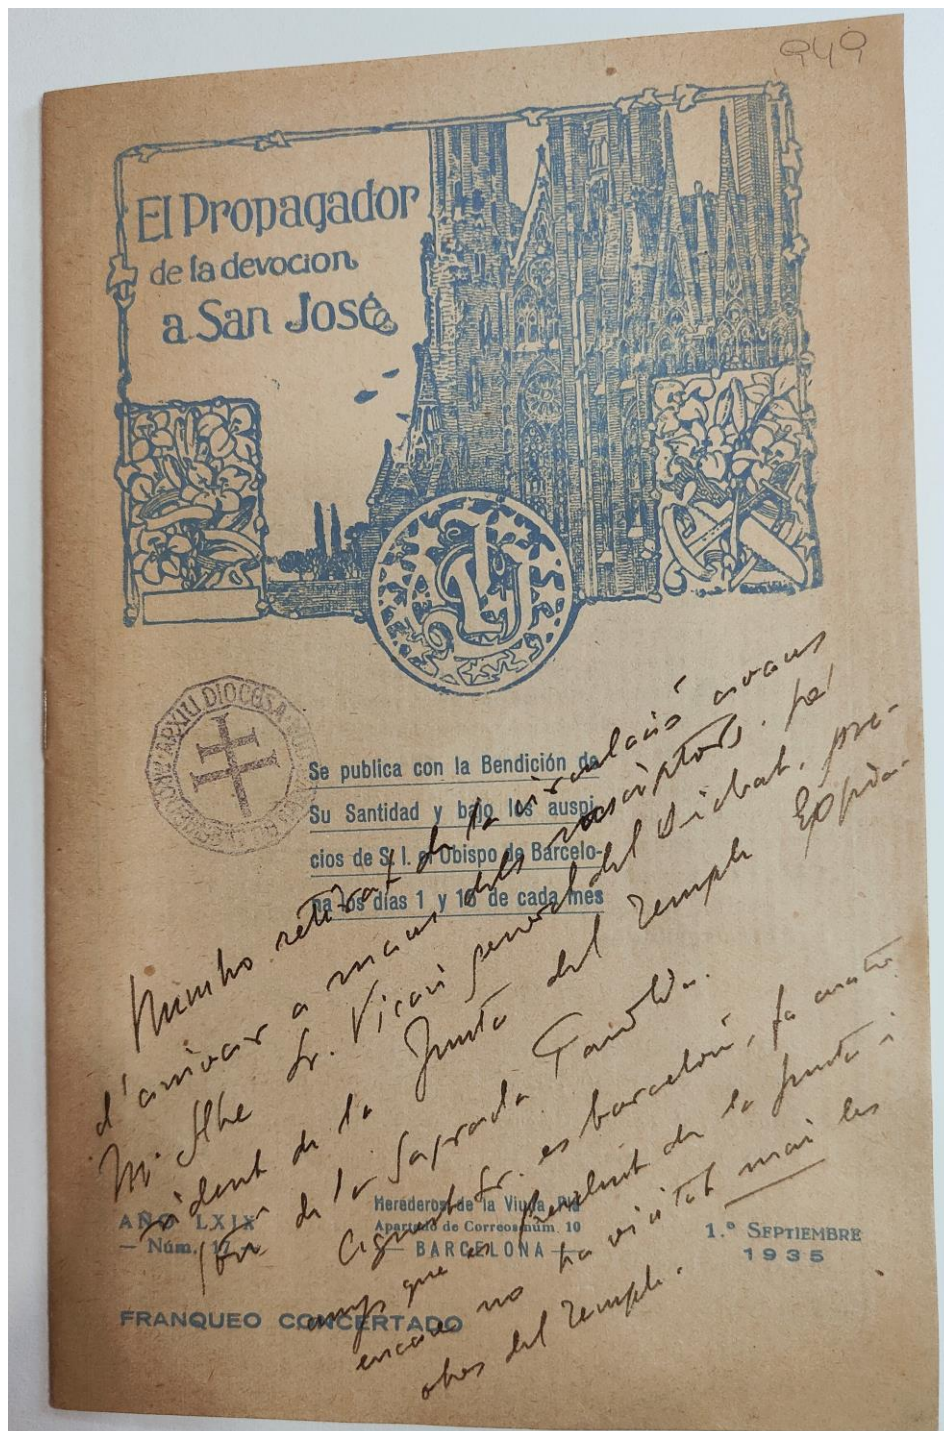 949
El Propagador
de la devocion
a San José
ARXIU DIOCESÀ
Se publica con la Bendición de
Su Santidad y bajo los auspi-
cios de S. I. el Obispo de Barcelo-
na los días 1 y 15 de cada mes
Número retirat de la circulació avans
d'arrivar a mans dels suscriptors, pel
M. Iltre Sr. Vicari general del Bisbat, pre-
sident de la Junta del Temple Expia-
tori de la Sagrada Familia.
Aquest Sr. es barceloní, fa quatre
anys que es President de la Junta i
encare no ha visitat mai les
obres del Temple.
AÑO LXIX
— Núm. 17
Herederos de la Viuda Pla
Apartado de Correos núm. 10
— BARCELONA —
1.º SEPTIEMBRE
1935
FRANQUEO CONCERTADO